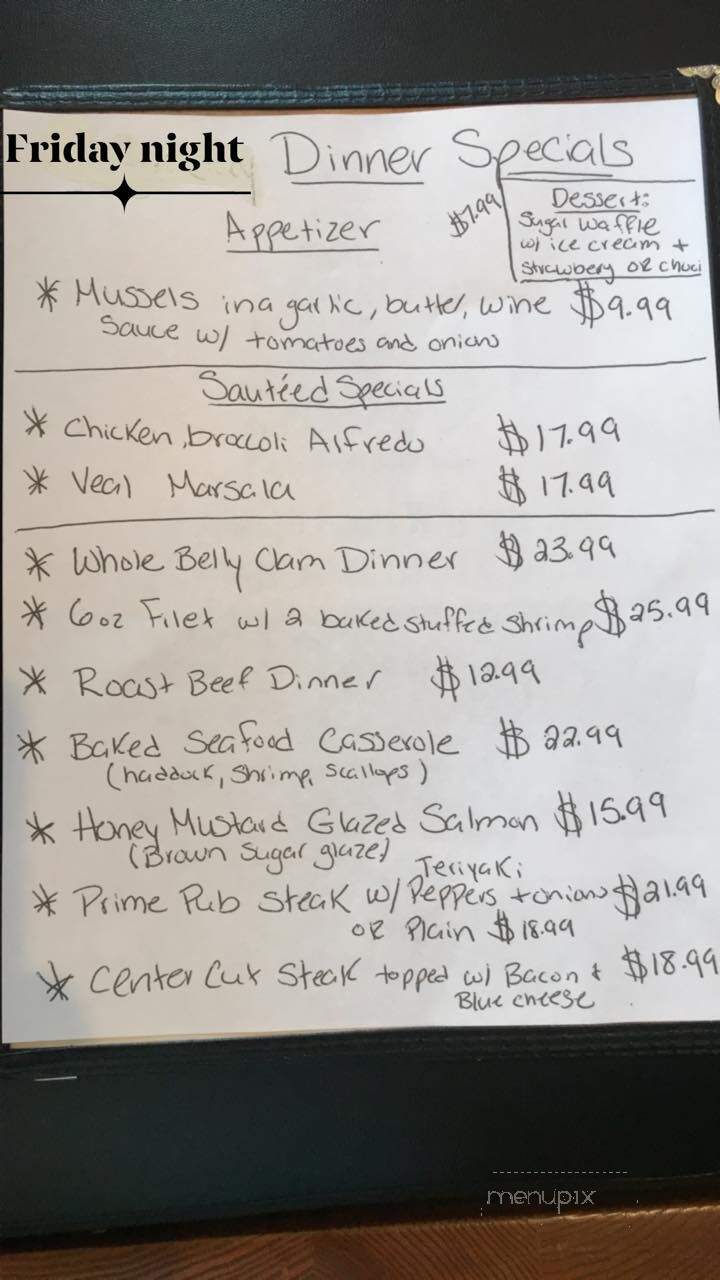 Friday night
Dinner Specials
$7.99
Dessert:
Sugar Waffle
w/ ice cream +
Strawbery OR Choci
Appetizer
* Mussels in a garlic, butter, wine $9.99
Sauce w/ tomatoes and onions
Sautéed Specials
* Chicken, broccoli Alfredo $17.99
* Veal Marsala $17.99
* Whole Belly Clam Dinner $23.99
* 6oz Filet w/ 2 baked stuffed Shrimp $25.99
* Roast Beef Dinner $12.99
* Baked Seafood Casserole $22.99
(haddock, Shrimp, Scallops)
* Honey Mustard Glazed Salmon $15.99
(Brown Sugar glaze)
Teriyaki
* Prime Pub Steak w/ Peppers + onions $21.99
OR Plain $18.99
* Center Cut Steak topped w/ Bacon & $18.99
Blue cheese
menupix